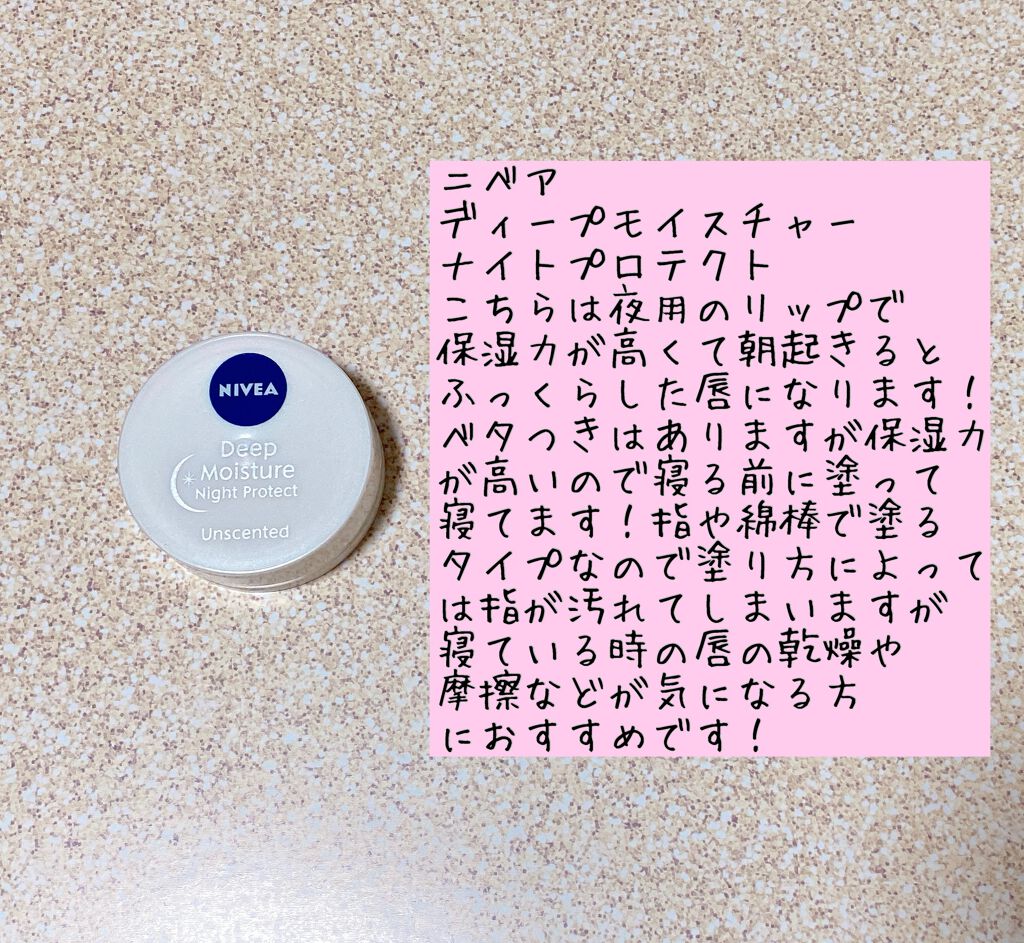 NIVEA
Deep
Moisture
Night Protect
Unscented
ニベア
ディープモイスチャー
ナイトプロテクト
こちらは夜用のリップで
保湿力が高くて朝起きると
ふっくらした唇になります!
ベタつきはありますが保湿力
が高いので寝る前に塗って
寝てます!指や綿棒で塗る
タイプなので塗り方によって
は指が汚れてしまいますが
寝ている時の唇の乾燥や
摩擦などが気になる方
におすすめです!